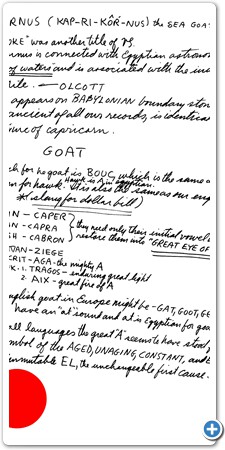 RNUS (KAP-RI-KÔR-NUS) the SEA GOA
OKE" was another title of
rnus is connected with Egyptian astrono
of waters" and is associated with the
ile. — OLCOTT
appears on BABYLONIAN boundary ston
ancient of all our records, is identica
ure of capricorn.
GOAT
ch for he goat is BOUC, which is the same a
Hawk is A in egyptian.
on for hawk. It is also the same as our eng
* (slang for dollar bill)
IN – CAPER
IN – CAPRA
SH – CABRON
they need only their initial vowels
restore them into "GREAT EYE OF
MAN – ZIEGE
CRIT – AGA – the mighty A
K: 1. TRAGOS – enduring great light
2. AIX – great fire of A
nglish goat in Europe might be – GAT, GOOT, GE
have an "at" sound and at is Egyptian for goa
all languages the great "A" seems to have stood f
mbol of the AGED, UNAGING, CONSTANT, and
immutable EL, the unchangeable first cause.